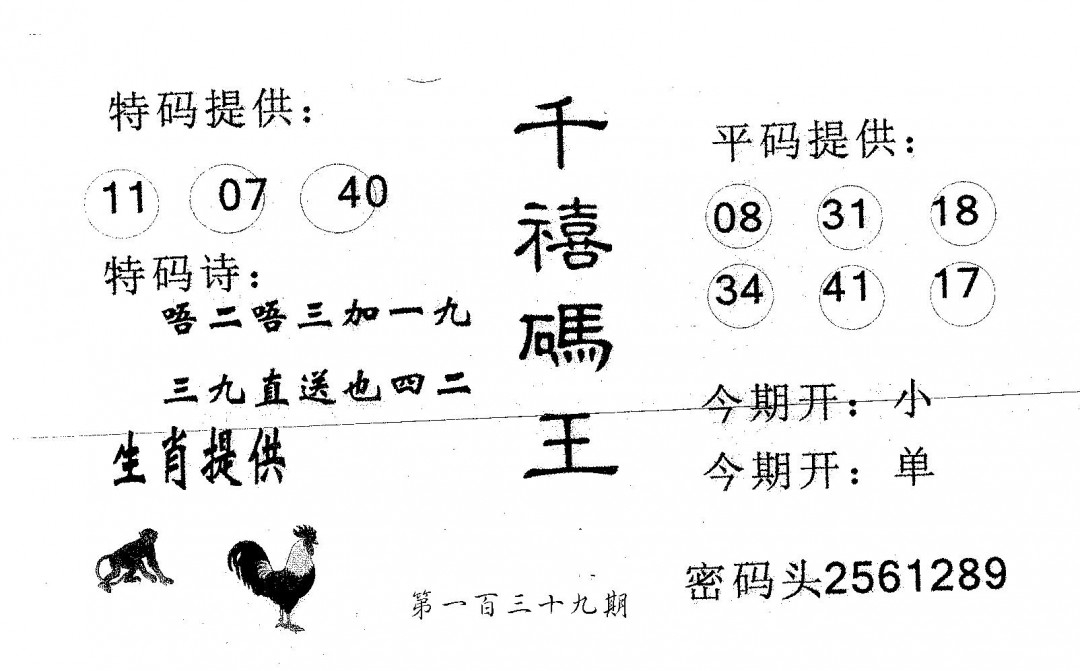 特码提供：
11 07 40
特码诗：
唔二唔三加一九
三九直送也四二
生肖提供
千禧碼王
第一百三十九期
平码提供：
08 31 18
34 41 17
今期开：小
今期开：单
密码头2561289